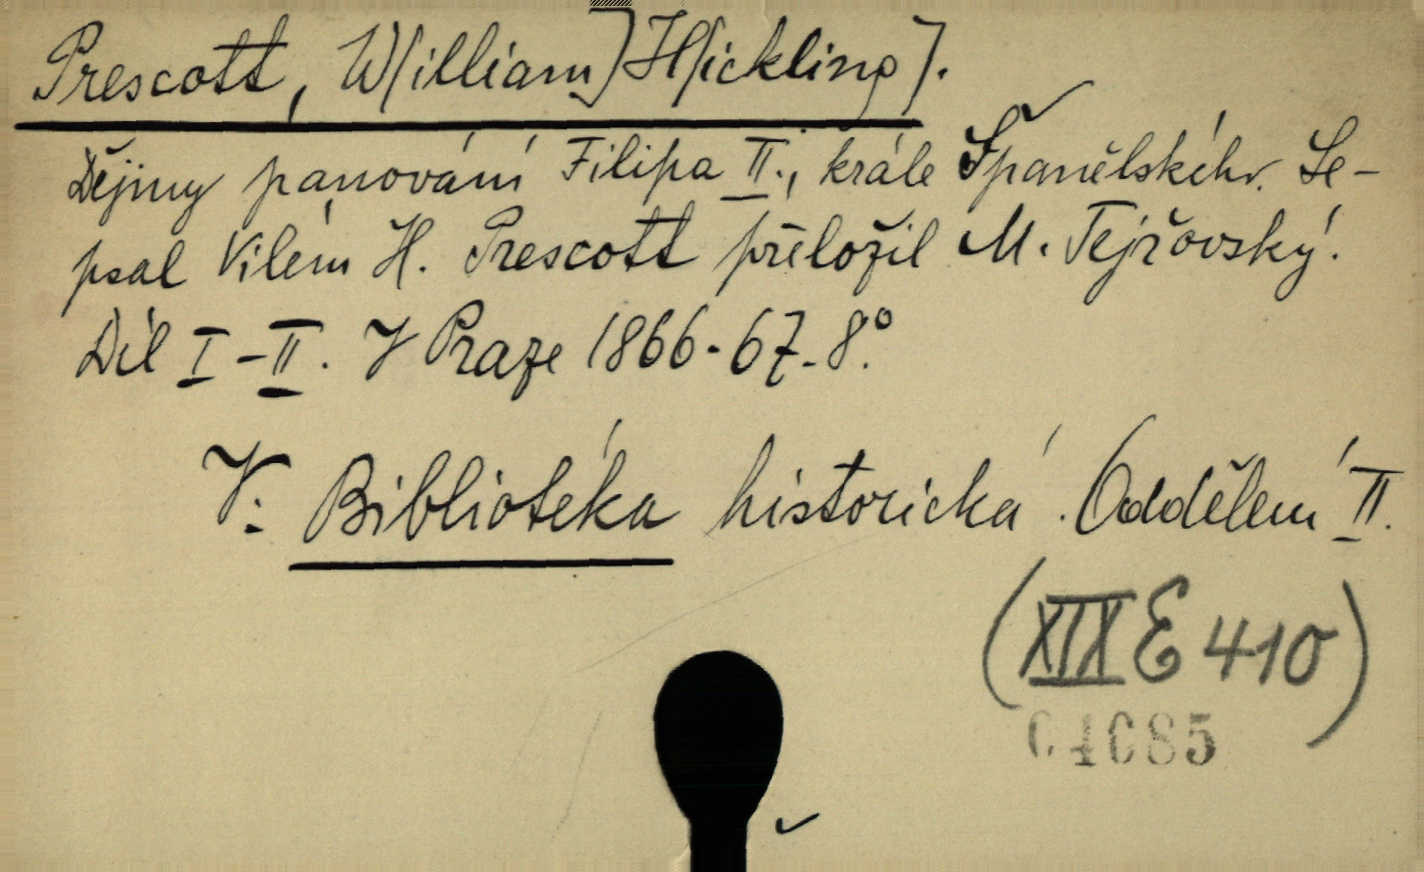 Prescott, W[illiam] H[ickling].
Dějiny panování Filipa II., krále Španělského. Se-
psal Vilém H. Prescott přeložil M. Tejřovský.
Díl I-II. V Praze 1866-67. 8.°
V: Bibliotéka historická. Oddělení II.
(XIX E 410)
04085